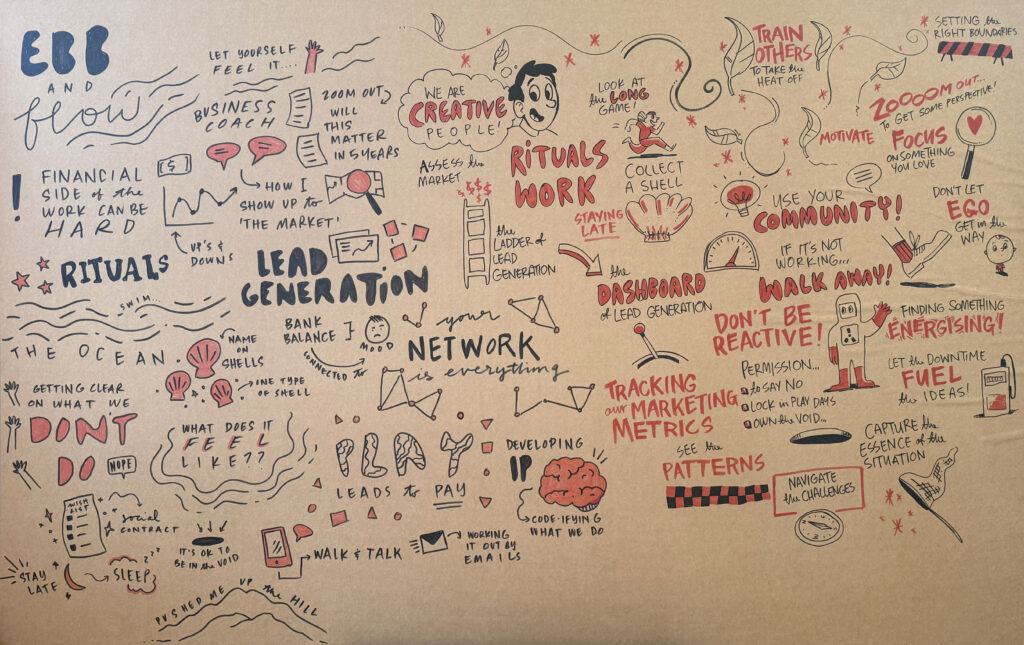 EBB
AND
flow
LET YOURSELF
FEEL IT....
BUSINESS
COACH
ZOOM OUT
WILL
THIS
MATTER
IN 5 YEARS
!
FINANCIAL
SIDE of the
WORK CAN BE
HARD
$
HOW I
SHOW UP to
'THE MARKET'
UP'S &
DOWNS
RITUALS
LEAD
GENERATION
SWIM...
THE OCEAN
NAME
ON
SHELLS
ONE TYPE
OF SHELL
BANK
BALANCE }
MOOD
CONNECTED to
your
NETWORK
is everything
GETTING CLEAR
ON WHAT WE
DON'T
DO
NOPE
WHAT DOES IT
FEEL
LIKE??
PLAY
LEADS to PAY
DEVELOPING
IP
CODE-IFYING
WHAT WE DO
WISH
LIST
SOCIAL
CONTRACT
IT'S OK TO
BE IN the VOID
WALK & TALK
WORKING
IT OUT BY
EMAILS
STAY
LATE
SLEEP
zzz
PUSHED ME UP the HILL
WE ARE
CREATIVE
PEOPLE!
ASSESS the
MARKET
$$$$$
the
LADDER of
LEAD
GENERATION
RITUALS
WORK
STAYING
LATE
LOOK AT
the LONG
GAME!
COLLECT
A SHELL
the
DASHBOARD
OF LEAD GENERATION
TRACKING
our MARKETING
METRICS
SEE the
PATTERNS
TRAIN
OTHERS
TO TAKE the
HEAT OFF
SETTING the
RIGHT BOUNDARIES
ZOOOOM OUT...
TO GET SOME PERSPECTIVE!
MOTIVATE
FOCUS
ON SOMETHING
YOU LOVE
USE YOUR
COMMUNITY!
DON'T LET
EGO
GET in the
WAY
IF IT'S NOT
WORKING...
WALK AWAY!
DON'T BE
REACTIVE!
PERMISSION...
TO SAY NO
LOCK IN PLAY DAYS
OWN the VOID...
FINDING SOMETHING
ENERGISING!
LET the DOWNTIME
FUEL
the IDEAS!
CAPTURE the
ESSENCE OF the
SITUATION
NAVIGATE
the CHALLENGES